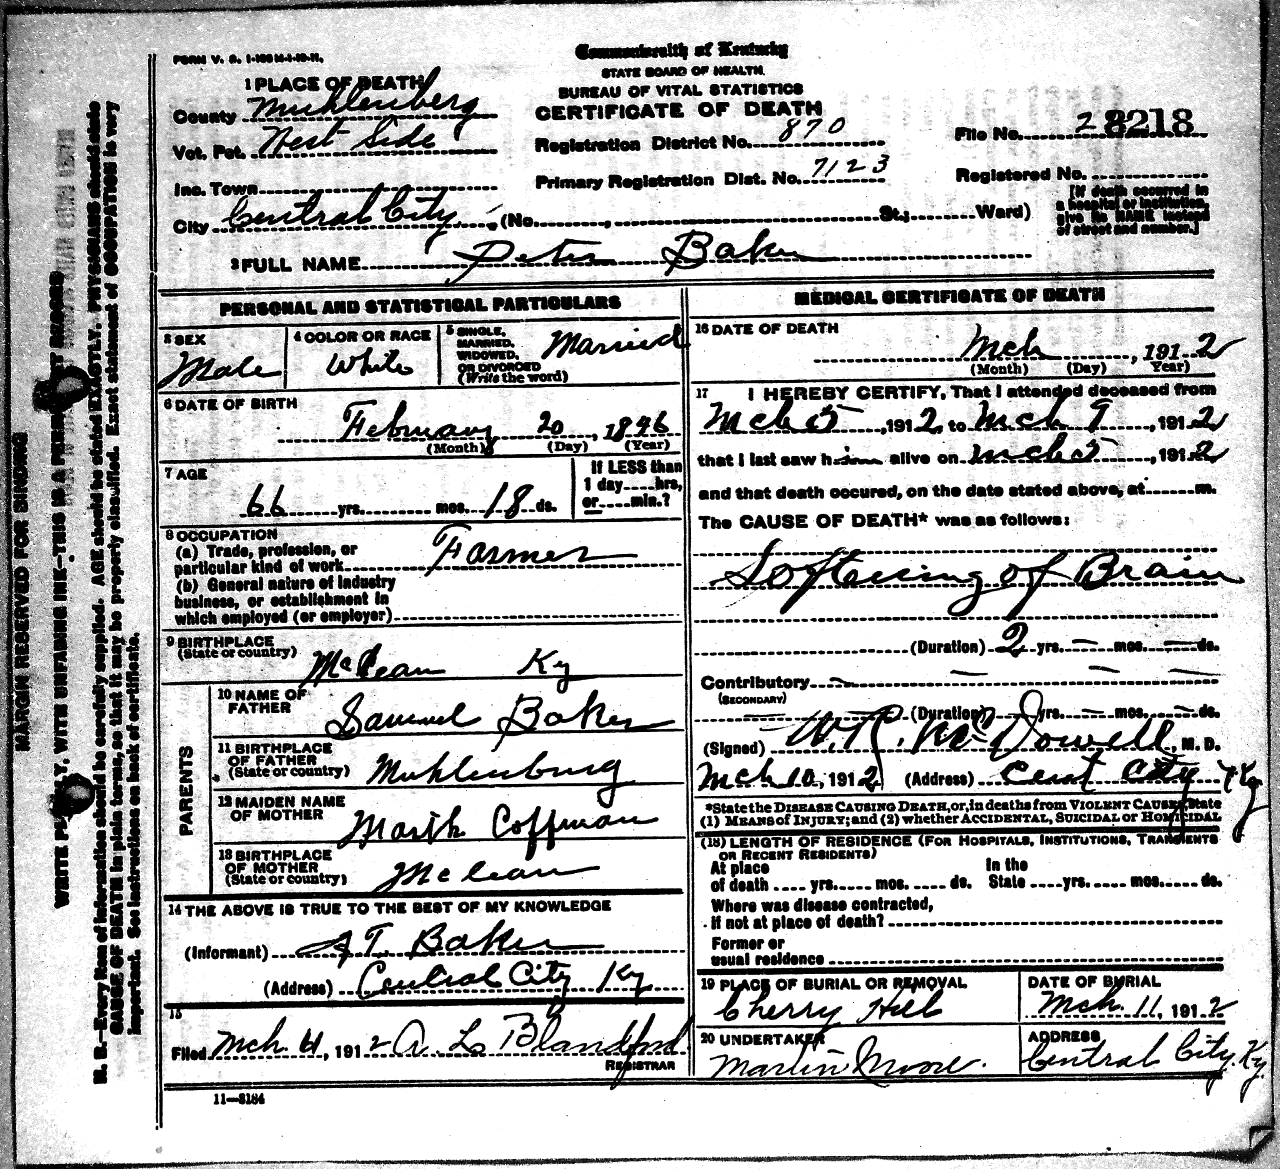 FORM V. S. 1-100 M-1-10-11.
Commonwealth of Kentucky
STATE BOARD OF HEALTH.
BUREAU OF VITAL STATISTICS
CERTIFICATE OF DEATH
1 PLACE OF DEATH
County Muhlenberg
Vot. Pct. West Side
Inc. Town
City Central City (No. , St.; Ward)
Registration District No. 870
Primary Registration Dist. No. 7123
File No. 28218
Registered No.
[If death occurred in
a hospital or institution,
give its NAME instead
of street and number.]
2 FULL NAME Peter Baker
PERSONAL AND STATISTICAL PARTICULARS
3 SEX
Male
4 COLOR OR RACE
White
5 SINGLE,
MARRIED,
WIDOWED,
OR DIVORCED
(Write the word)
Married
6 DATE OF BIRTH
February 20, 1846
(Month) (Day) (Year)
7 AGE
66 yrs. mos. 18 ds.
If LESS than
1 day hrs,
or min.?
8 OCCUPATION
(a) Trade, profession, or
particular kind of work Farmer
(b) General nature of Industry
business, or establishment in
which employed (or employer)
9 BIRTHPLACE
(State or country) McLean Ky
PARENTS
10 NAME OF
FATHER Samuel Baker
11 BIRTHPLACE
OF FATHER
(State or country) Muhlenburg
12 MAIDEN NAME
OF MOTHER Coffman
13 BIRTHPLACE
OF MOTHER
(State or country) McLean
14 THE ABOVE IS TRUE TO THE BEST OF MY KNOWLEDGE
(Informant) Baker
(Address) Central City Ky
15
Filed Mch , 1912 A L Blandford
REGISTRAR
MEDICAL CERTIFICATE OF DEATH
16 DATE OF DEATH
Mch , 1912
(Month) (Day) Year)
17 I HEREBY CERTIFY, That I attended deceased from
Mch 5, 1912, to Mch 9, 1912
that I last saw him alive on Mch 5, 1912
and that death occured, on the date stated above, at m.
The CAUSE OF DEATH* was as follows:
Softening of Brain
(Duration) 2 yrs. — mos. — ds.
Contributory — — — —
(SECONDARY)
(Duration) yrs. — mos. — ds.
(Signed) W.R. McDowell, M. D.
Mch 10, 1912 (Address) Cent City Ky
*State the DISEASE CAUSING DEATH, or, in deaths from VIOLENT CAUSES, state
(1) MEANS of INJURY; and (2) whether ACCIDENTAL, SUICIDAL or HOMICIDAL
(18) LENGTH OF RESIDENCE (FOR HOSPITALS, INSTITUTIONS, TRANSIENTS
OR RECENT RESIDENTS)
At place
of death yrs. mos. ds.
In the
State yrs. mos. ds.
Where was disease contracted,
if not at place of death?
Former or
usual residence
19 PLACE OF BURIAL OR REMOVAL
Cherry Hill
DATE OF BURIAL
Mch 11, 1912
20 UNDERTAKER
Martin Moore.
ADDRESS
Central City, Ky.
11—3184
MARGIN RESERVED FOR BINDING
WRITE PLAINLY, WITH UNFADING INK—THIS IS A PERMANENT RECORD
N. B.—Every item of information should be carefully supplied. AGE should be stated EXACTLY. PHYSICIANS should state
CAUSE OF DEATH in plain terms, so that it may be properly classified. Exact statement of OCCUPATION is very
important. See instructions on back of certificate.